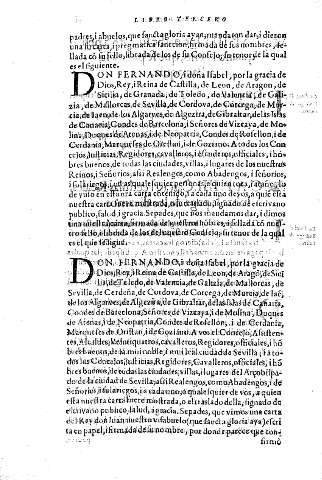 LIBRO TERCERO
padres, i abuelos, que sancta gloria ayan, mandaron dar, i dieron
una su carta, i pregmatica sancion, firmada de sus nombres, i se-
llada con su sello, librada de los de su Consejo, su tenor de la qual
es el siguiente.
DON FERNANDO, i doña Isabel, por la gracia de
Dios, Rey, i Reina de Castilla, de Leon, de Aragon, de
Sicilia, de Granada, de Toledo, de Valencia, de Gali-
zia, de Mallorcas, de Sevilla, de Cordova, de Corcega, de Mur-
cia, de Iaen, de los Algarves, de Algezira, de Gibraltar, de las Islas
de Canaria, Condes de Barcelona, i Señores de Vizcaya, de Mo-
lina, Duques de Atenas, i de Neopatria, Condes de Rosellon, i de
Cerdania, Marqueses de Oristan, i de Gociano. A todos los Con-
cejos, Iusticias, Regidores, cavalleros, i escuderos, officiales, i hõ-
bres buenos, de todas las ciudades, villas, i lugares de los nuestros
Reinos, i Señorios, assi Realengos, como Abadengos, i señorios,
nuestra carta fuere mostrada, o su traslado, signado de escrivano
publico, salud, i gracia. Sepades, que nos mandamos dar, i dimos
es el que se sigue.
DON FERNANDO, i doña Isabel, por la gracia de
Dios, Rey, i Reina de Castilla, de Leon, de Aragõ, de Sici
lia, de Toledo, de Valencia, de Galizia, de Mallorcas, de
Sevilla, de Cerdeña, de Cordova, de Corcega, de Murcia, de Iaẽ,
de los Algarves, de Algezira, de Gibraltar, de las Islas de Canaria,
Condes de Barcelona, Señores de Vizcaya, i de Molina, Duques
de Atenas, i de Neopatria, Condes de Rosellon, i de Cerdania,
Marqueses de Oristan, i de Gociano. A vos el Concejo, Assisten-
tes, Alcaldes, Veintiquatros, cavalleros, Regidores, officiales, i hõ
bres buenos, de la mui noble, i mui leal ciudad de Sevilla, i a to-
dos los Concejos, Iusticias, Regidores, Cavalleros, officiales, i hõ
bres buenos, de todas las ciudades, villas, i lugares del Arçobispa-
do de la ciudad de Sevilla, assi Realengos, como Abadengos, i de
Señorios, i a cada uno, i qualquier de vos, a quien
esta nuestra carta fuere mostrada, o el traslado della, signado de
escrivano publico, salud, i gracia. Sepades, que vimos una carta
del Rey don Iuan nuestro visabuelo (que sancta gloria aya) escri
ta en papel, i firmada de su nombre, por donde parece que con-
firmò